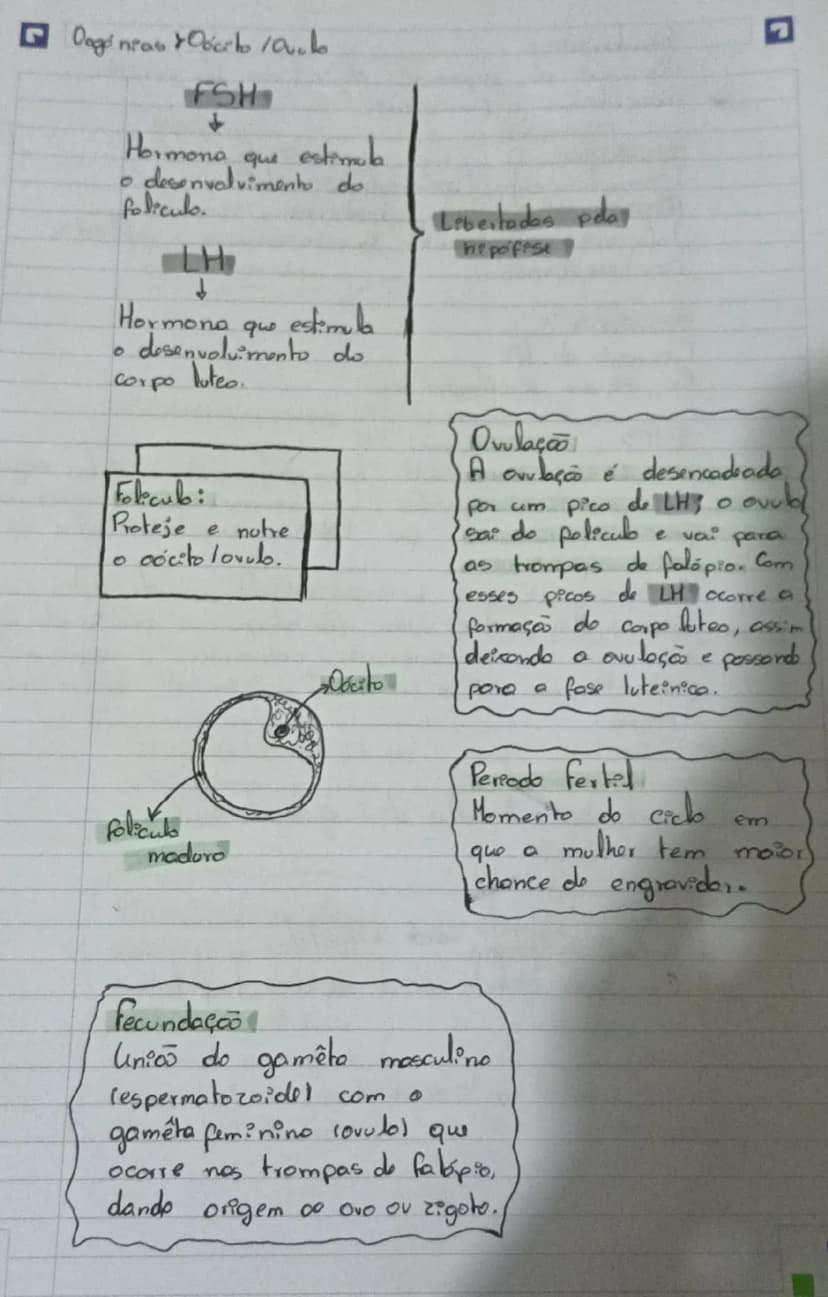 Oogóneas > Oócito / Óvulo
FSH
Hormona que estimula
o desenvolvimento do
folículo.
LH
Hormona que estimula
o desenvolvimento do
corpo lúteo.
Libertadas pela
hipófise
Folículo:
Proteje e nutre
o oócito/óvulo.
Ovulação
A ovulação é desencadeada
por um pico de LH; o óvulo
sai do folículo e vai para
as trompas de falópio. Com
esses picos de LH ocorre a
formação do corpo lúteo, assim
deixando a ovulação e passando
para a fase luteínica.
Oócito
Folículo
maduro
Período Fértil
Momento do ciclo em
que a mulher tem maior
chance de engravidar.
Fecundação
União do gamêta masculino
(espermatozoide) com o
gamêta feminino (óvulo) que
ocorre nas trompas de Falópio,
dando origem ao ovo ou zigoto.